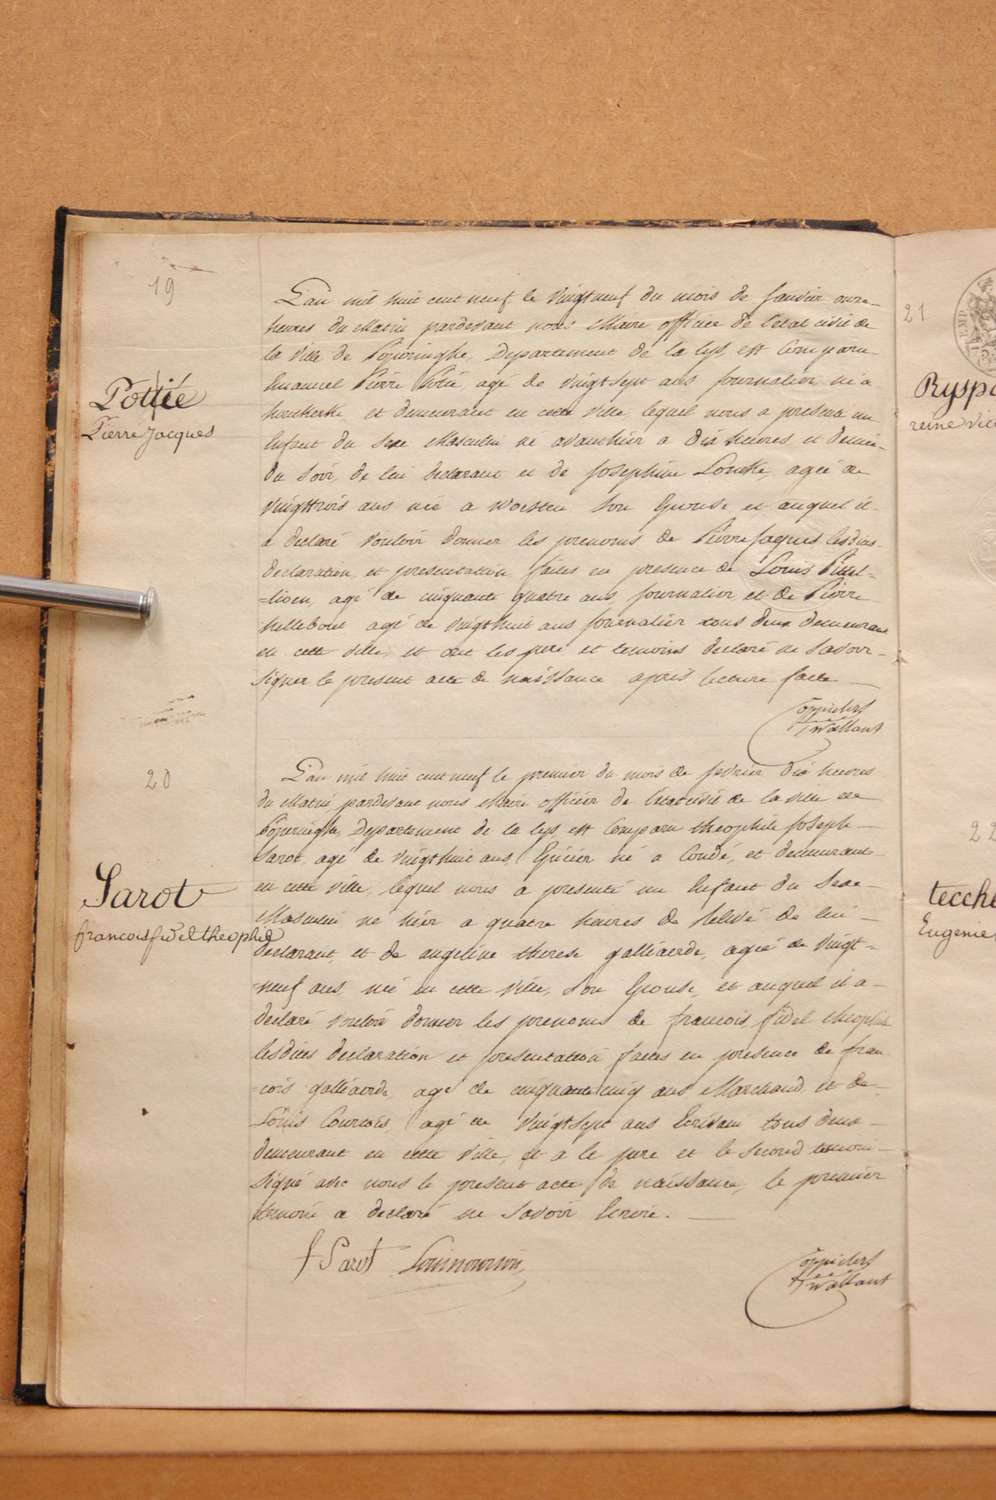 19
Pottié
Pierre Jacques
L'an mil huit cent neuf le vingtneuf du mois de janvier onze
heures du Matin pardevant nous Maire officier de l'etat civil de
la ville de Poperinghe, Departement de la lys, est Comparu
Emanuel Pierre Potié, agé de vingtsept ans journalier né a
et demeurant en cette ville lequel nous a presenté un
Enfant du Sexe Masculin né avanthier a dix heures et demie
du Soir, de lui declarant et de Josephine agée de
vingttrois ans née a Woesten Son Epouse et auquel il
a declaré vouloir donner les prenoms de Pierre Jaques lesdites
declaration et presentation faites en presence de Louis
agé de cinquante quatre ans journalier et de Pierre
Hellebout agé de vingthuit ans journalier tous deux demeurant
en cette ville, et ont les pere et temoins declaré ne Savoir
Signer le present acte de naissance après lecture faite
20
Sarot
francois fidel theophile
L'an mil huit cent neuf le premier du mois de fevrier dix heures
du Matin pardevant nous Maire officier de l'etat civil de la ville de
Poperinghe, Departement de la lys, est Comparu theophile Joseph
Sarot, agé de vingthuit ans, Epicier né a Condé, et demeurant
en cette ville, lequel nous a presenté un Enfant du Sexe
Masculin né hier a quatre heures de relevé de lui
declarant, et de angeline therese galliaerde, agée de vingt
neuf ans, née en cette ville, Son Epouse, et auquel il a
declaré vouloir donner les prenoms de francois fidel theophile
lesdites declaration et presentation faites en presence de fran
cois galliaerde, agé de cinquante cinq ans Marchand et de
Louis Courtois agé de vingtsept ans Ecrivain tous deux
demeurant en cette ville, et a le pere et le Second temoin
Signé avec nous le present acte de naissance, le premier
temoin a declaré ne Savoir Ecrire.
Sarot
21
reine
22
Eugenie